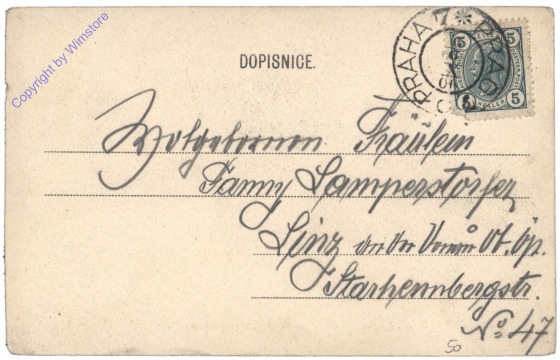 Copyright by Wimstore
DOPISNICE.
PRAHA 7 * PRAG
5 5
5 5
Wolgeborenen Fräulein
Fanny Lamperstorfer
Linz an der Donau Ob. Öp.
Starhembergstr.
No. 47
50